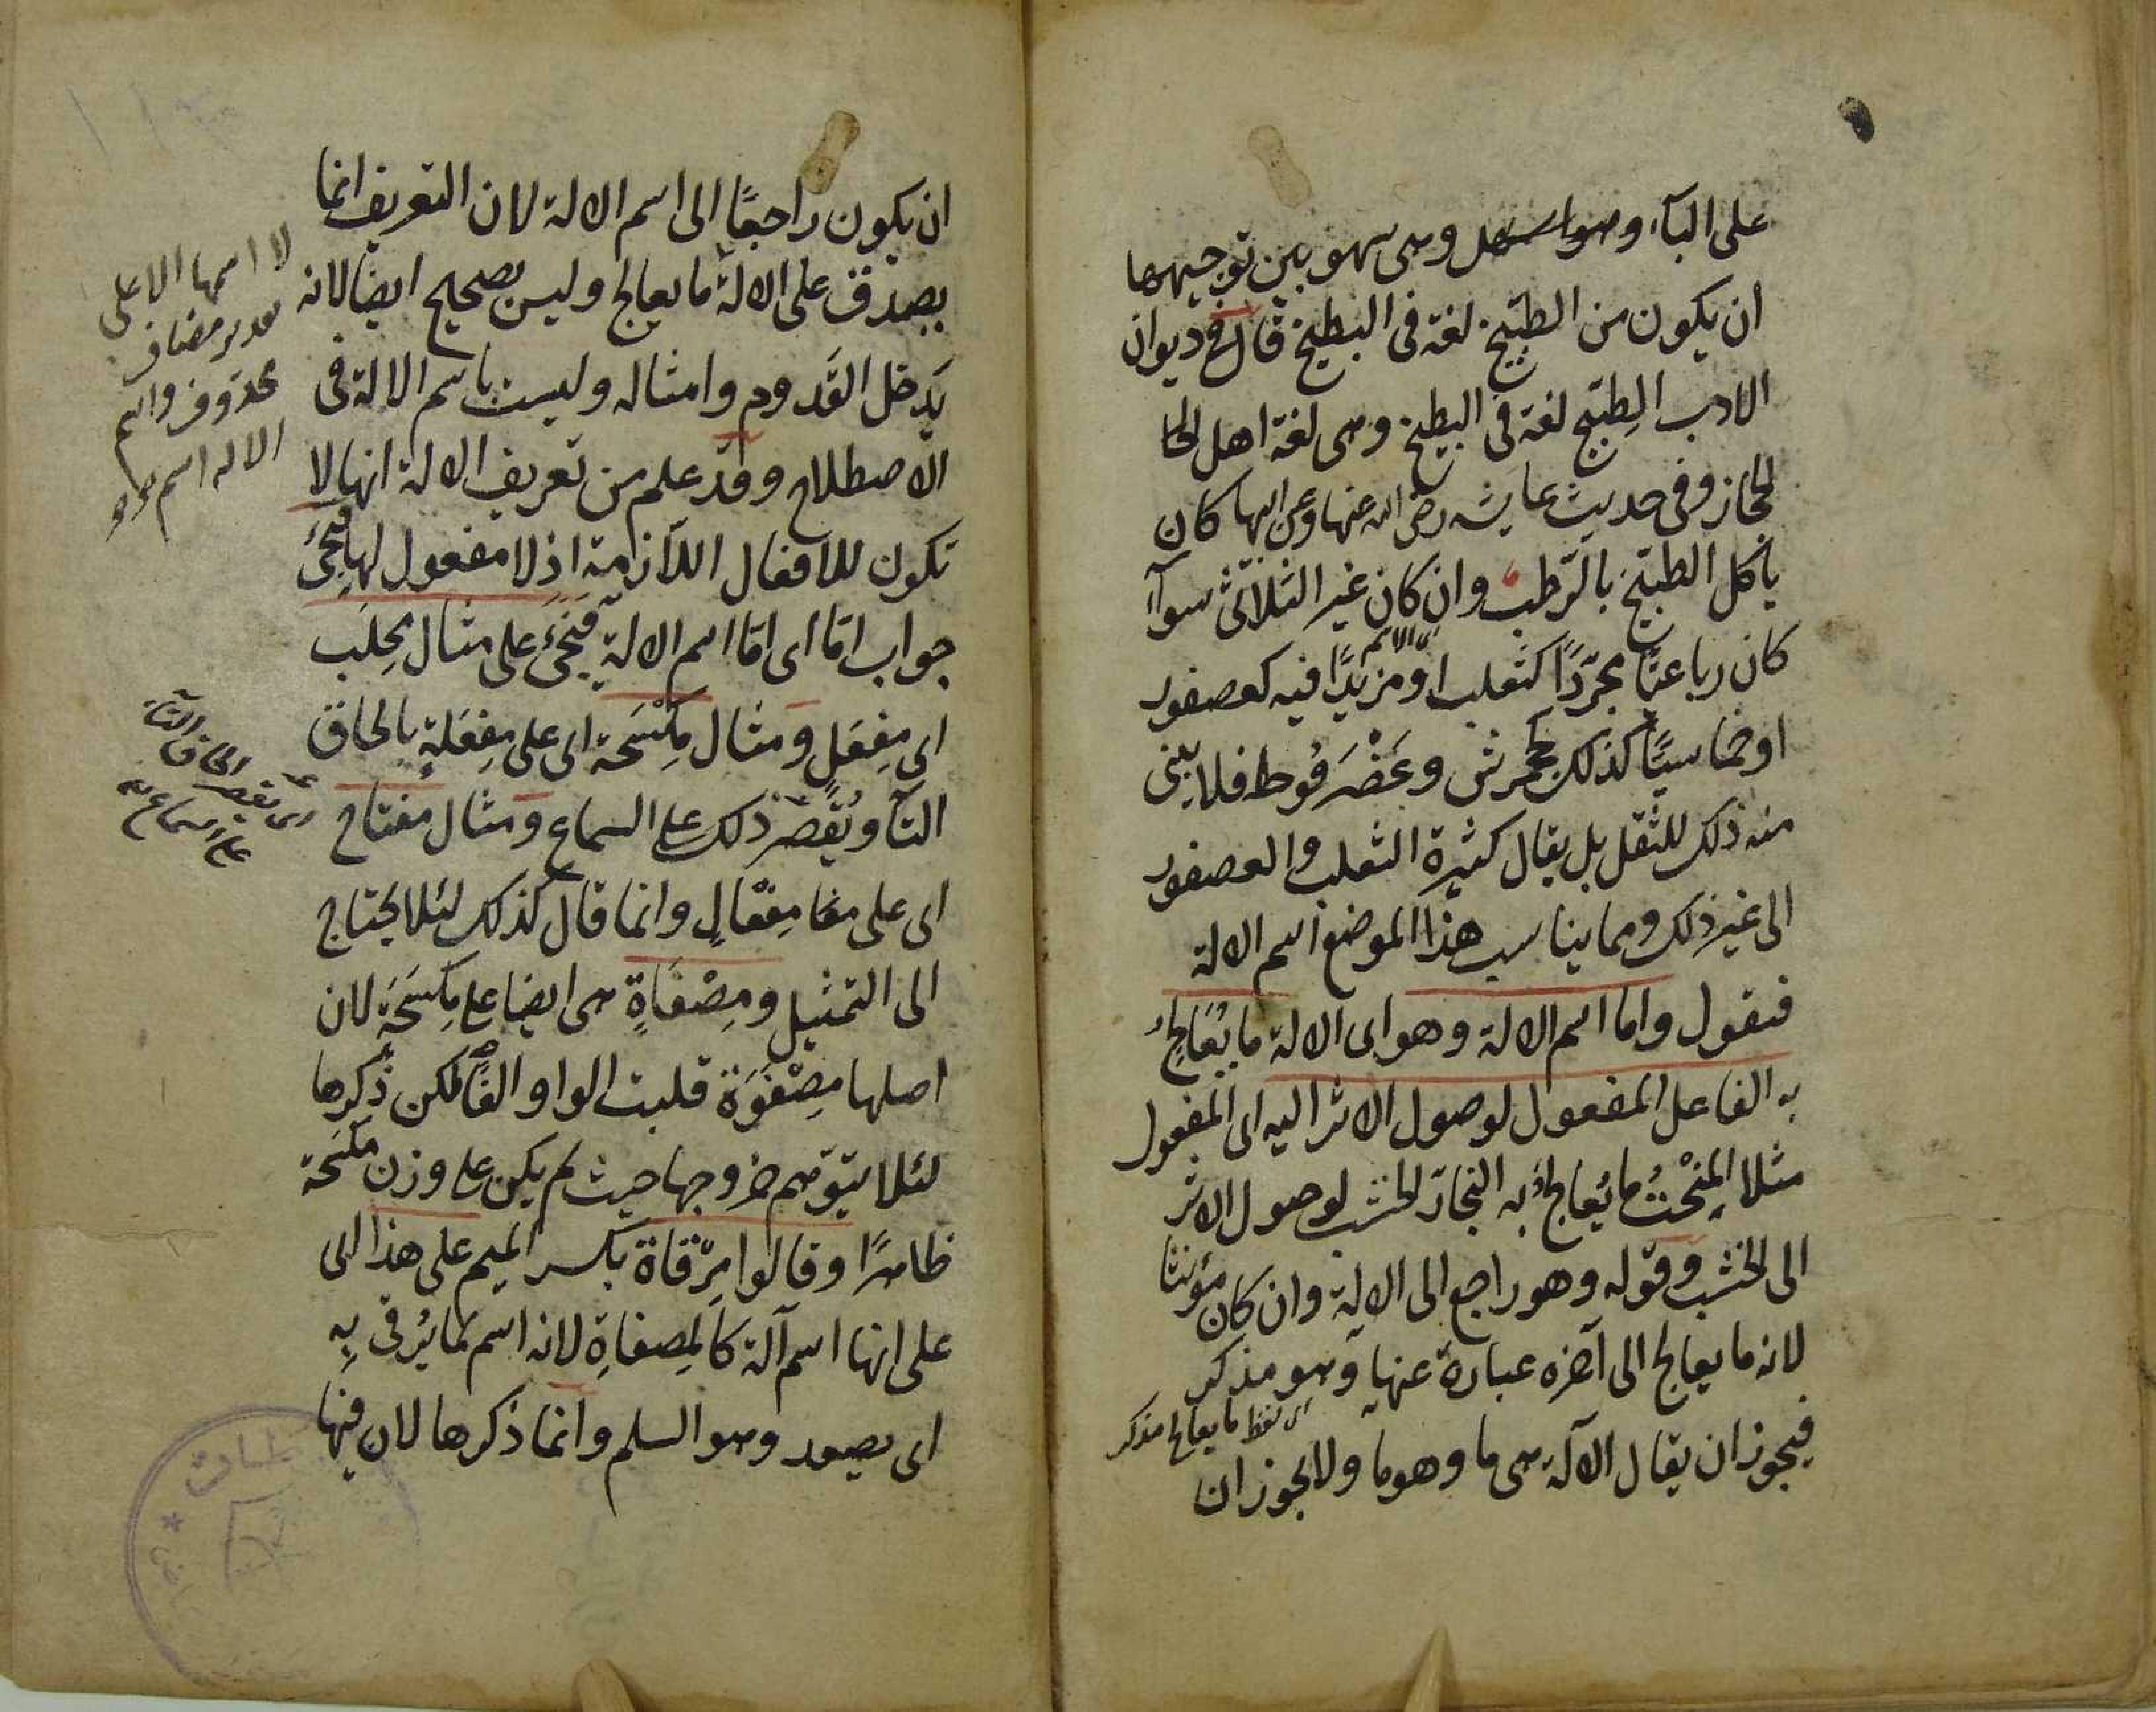 على الباء وهو سهل وهى سهو بين توجيهها
ان يكون من الطبيخ لغة فى البطيخ قال فى ديوان
الادب الطبيخ لغة فى البطيخ وهى لغة اهل الحا
لحجاز وفى حديث عايشه رضى الله عنها وعن ابيها كان
ياكل الطبيخ بالرطب وان كان غير الثلاثى سوآء
كان رباعيًّا مجرّدًا كثعلب او مزيدًا فيه كعصفور
او خماسيًّا كذلك كجحمرش وعَضْرَفُوط فلا يبنى
منه ذلك للثقل بل يقال كثيرة الثعلب والعصفور
الى غير ذلك ومما يناسب هذا الموضع اسم الالة
فنقول واما اسم الالة وهو اى الالة ما يُعَالِجُ
به الفاعل المفعول لوصول الاثر اليه اى المفعول
مثلا المِنْحَتُ ما يُعالجُ به النجار الخشب لوصول الاثر
الى الخشب وقوله وهو راجع الى الالة وان كان مؤنثا
لانه ما يعالج الى آخره عبارة عنها وهو مذكر
اى لفظ ما يعالج مذكر
فيجوز ان يقال الآلة هى ما وهو ما ولا يجوز ان
ان يكون راجعًا الى اسم الالة لان التعريف انما
يصدق على الالة ما يعالج وليس بصحيح ايضا لانه
يدخل القَدوم وامثاله وليست باسم الالة فى
الاصطلاح وقد علم من تعريف الالة انها لا
تكون للافعال اللازمة اذ لا مفعول لها فيجئ
جواب امّا اى امّا اسم الالة فيَجئ على مثال مِحلَب
اى مِفعَلٍ ومثال مِكسَحة اى على مِفعَلةٍ بالحاق
التآء ويُقصَر ذلك على السماع ومثال مفتاح
اى على مفا مِفعَالٍ وانما قال كذلك لئلا يحتاج
الى التمثيل ومِصْفَاةٍ هى ايضا على مِكسَحَةٍ لان
اصلها مِصْفَوَة قلبت الواو الفًا لكن ذكرها
لئلا يتوّهم خروجها حيث لم يكن على وزن مكسحة
ظاهرًا وقالوا مِرْقاة بكسر الميم على هذا الى
على انها اسم آلة كالمِصفاةِ لانه اسم لما يُرقى بِهِ
اى يصعد وهو السلم وانما ذكرها لان فيها
لا اسمها الا على
تقدير مضاف
محذوف واسم
الاله اسم
اى يقصر الحاق التاء
على سماع